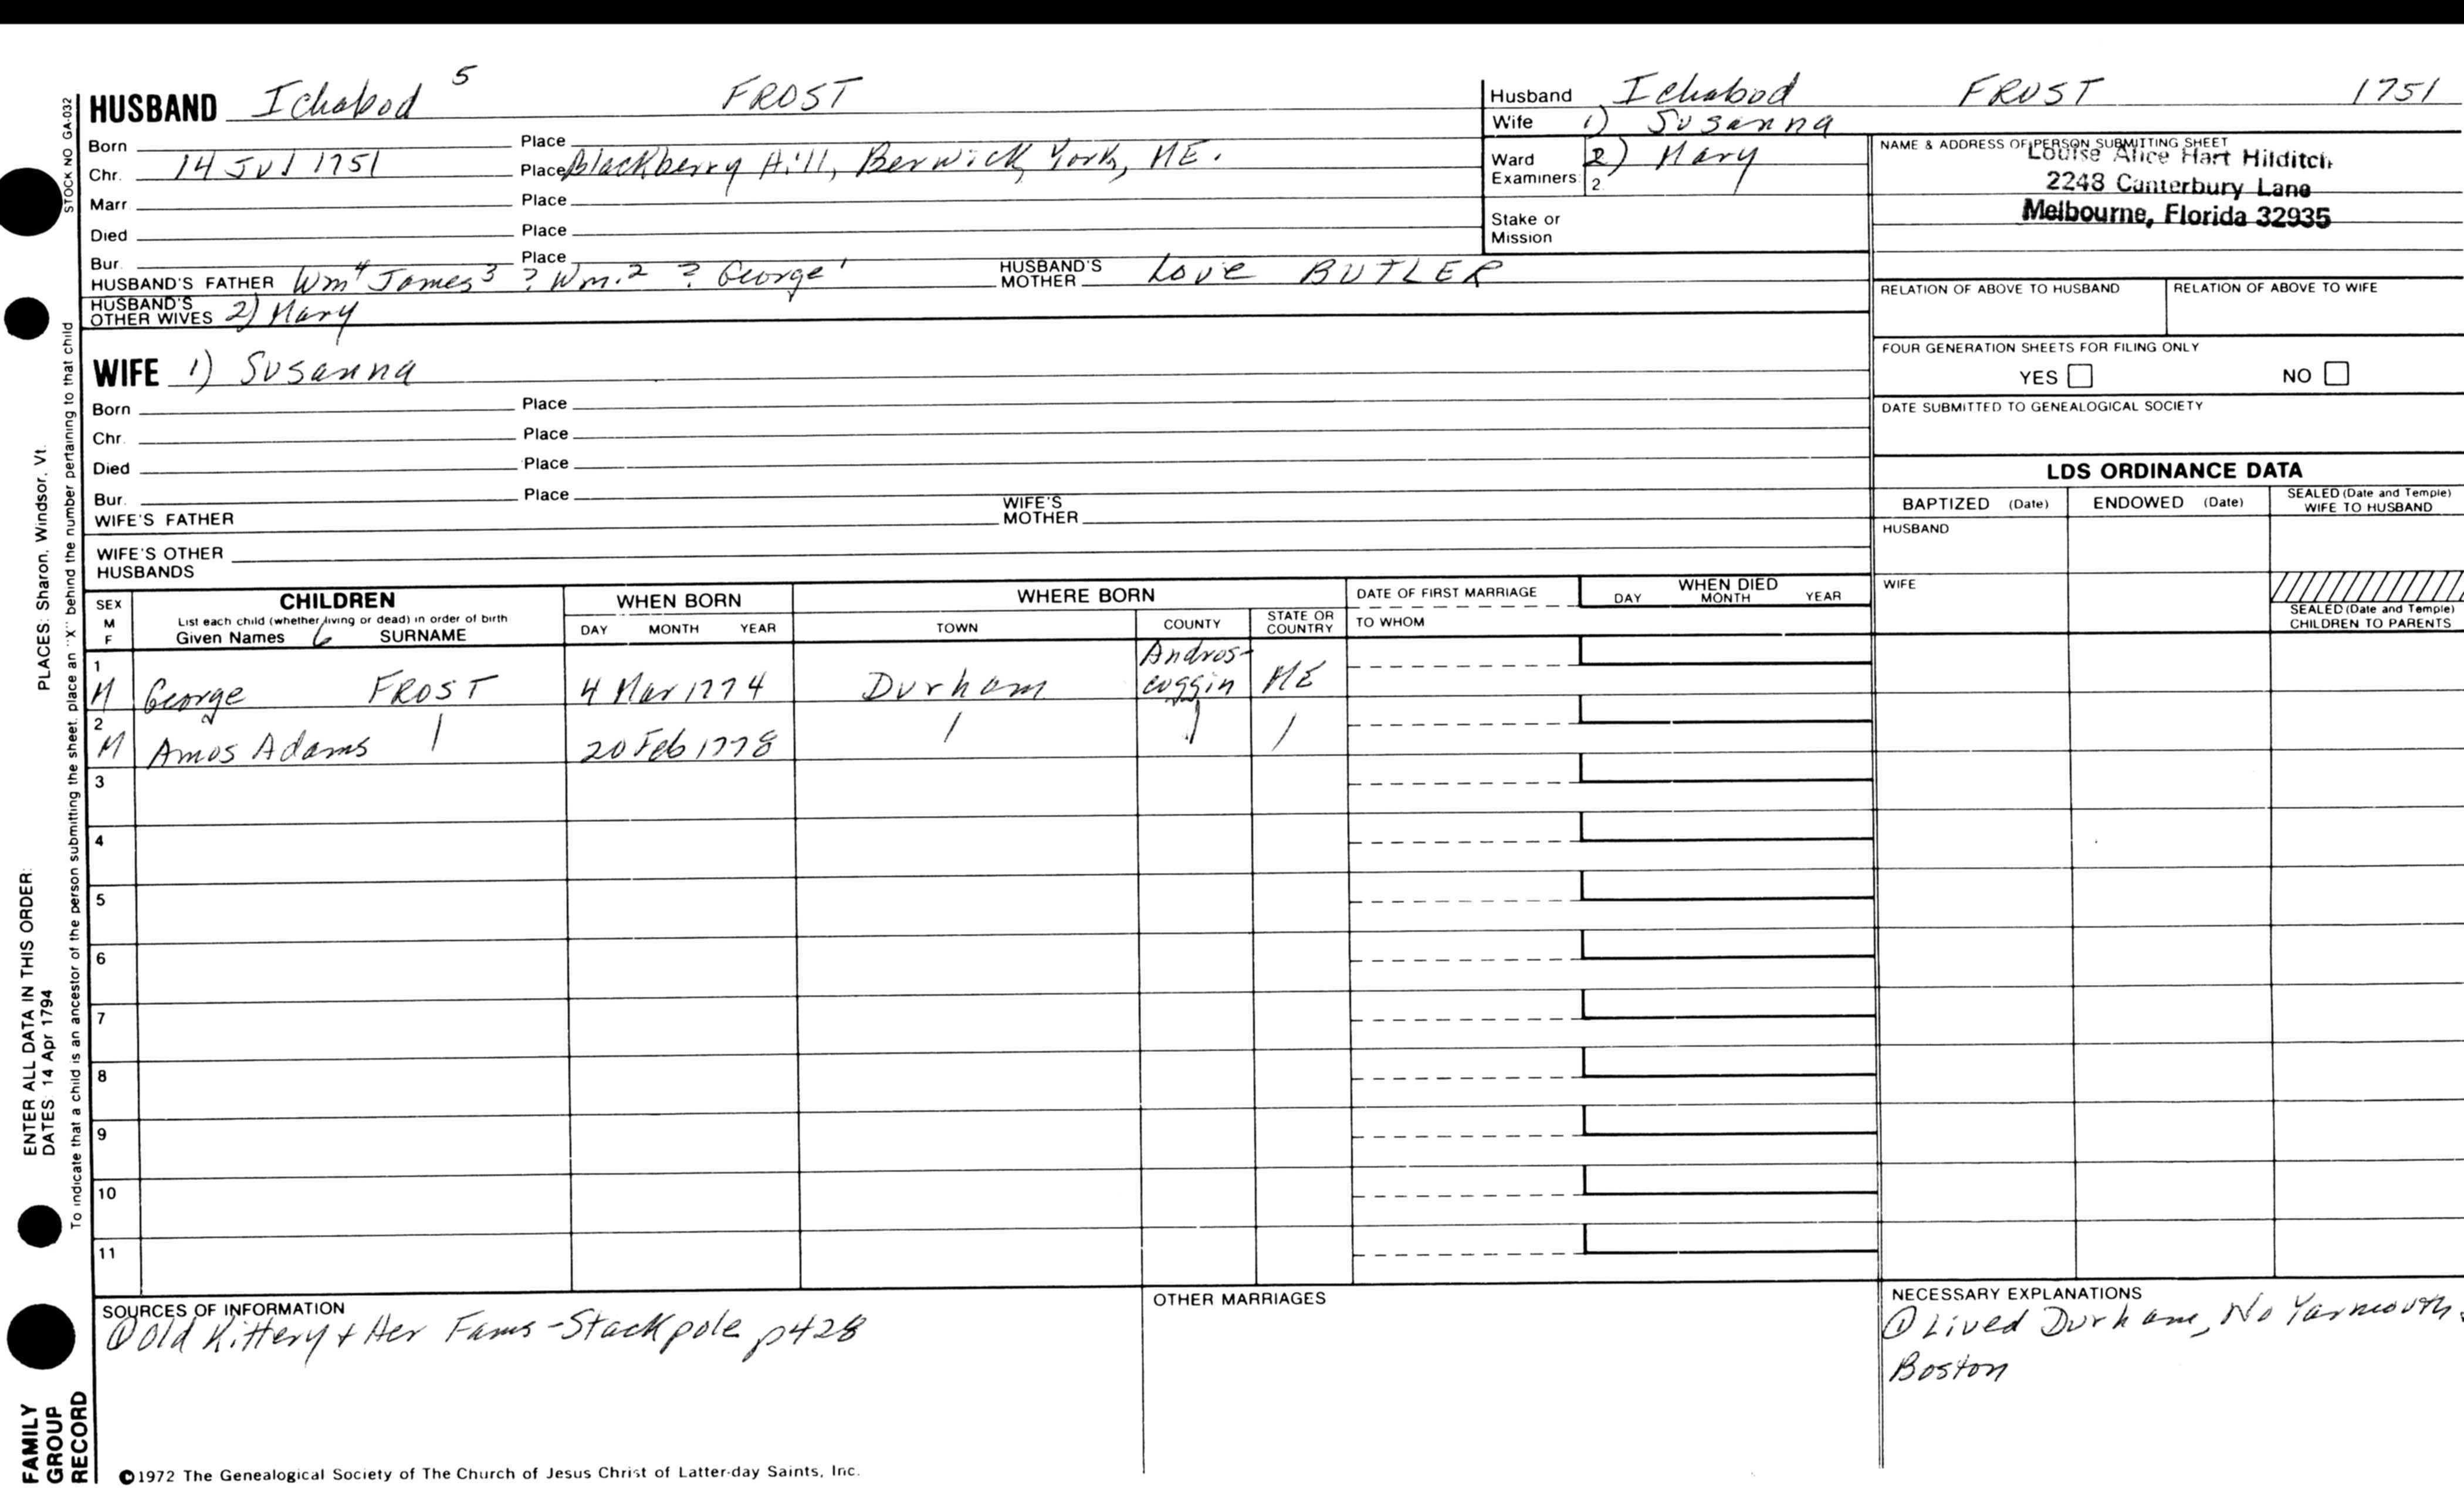 STOCK NO GA-032
PLACES: Sharon, Windsor, Vt.
ENTER ALL DATA IN THIS ORDER:
DATES: 14 Apr 1794
To indicate that a child is an ancestor of the person submitting the sheet, place an "X" behind the number pertaining to that child
FAMILY GROUP RECORD
HUSBAND Ichabod 5 FROST
Born Place
Chr. 14 Jul 1751 Place Blackberry Hill, Berwick, York, ME.
Marr Place
Died Place
Bur. Place
HUSBAND'S FATHER Wm 4 James 3 ? Wm. 2 ? George 1 HUSBAND'S MOTHER Love BUTLER
HUSBAND'S OTHER WIVES 2) Mary
WIFE 1) Susanna
Born Place
Chr. Place
Died Place
Bur. Place
WIFE'S FATHER WIFE'S MOTHER
WIFE'S OTHER HUSBANDS
Husband Ichabod FROST 1751
Wife 1) Susanna
Ward Examiners: 2) Mary
2.
Stake or Mission
NAME & ADDRESS OF PERSON SUBMITTING SHEET
Louise Alice Hart Hilditch
2248 Canterbury Lane
Melbourne, Florida 32935
RELATION OF ABOVE TO HUSBAND RELATION OF ABOVE TO WIFE
FOUR GENERATION SHEETS FOR FILING ONLY
YES NO
DATE SUBMITTED TO GENEALOGICAL SOCIETY
LDS ORDINANCE DATA
BAPTIZED (Date) ENDOWED (Date) SEALED (Date and Temple) WIFE TO HUSBAND
HUSBAND
WIFE
SEALED (Date and Temple) CHILDREN TO PARENTS
SEX M F CHILDREN WHEN BORN WHERE BORN DATE OF FIRST MARRIAGE WHEN DIED
List each child (whether living or dead) in order of birth
Given Names SURNAME DAY MONTH YEAR TOWN COUNTY STATE OR COUNTRY TO WHOM DAY MONTH YEAR
1 M George FROST 4 Mar 1774 Durham Andros-coggin ME
2 M Amos Adams | 20 Feb 1778 | | |
3
4
5
6
7
8
9
10
11
SOURCES OF INFORMATION
① Old Kittery + Her Fams - Stackpole p428
OTHER MARRIAGES
NECESSARY EXPLANATIONS
① Lived Durham, No Yarmouth,
Boston
©1972 The Genealogical Society of The Church of Jesus Christ of Latter-day Saints, Inc.